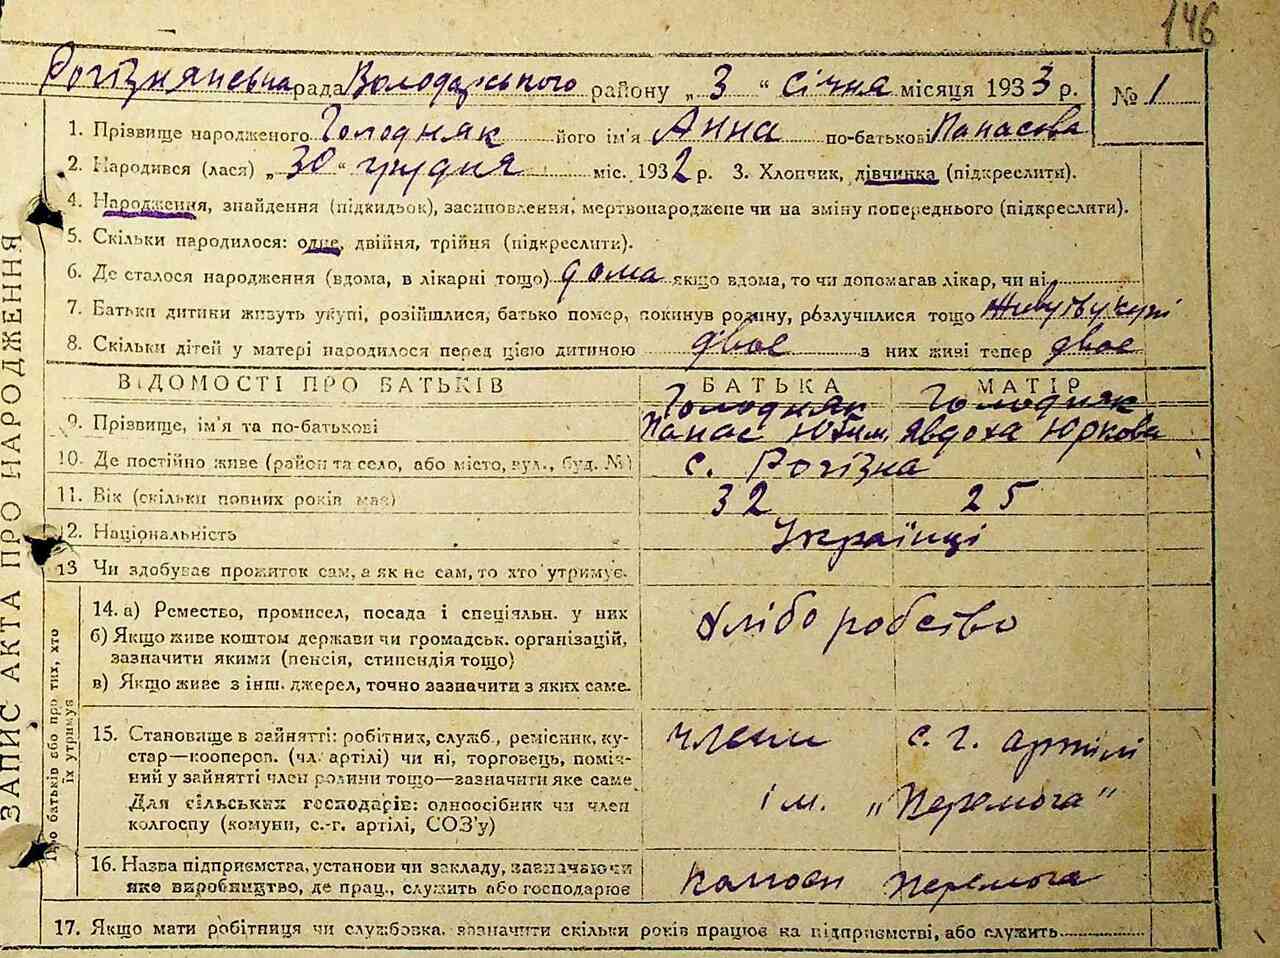 146
Рогізнянська рада Володарського району „ 3 “ січня місяця 1933 р. № 1
1. Прізвище народженого Голодняк його ім'я Анна по-батькові Панасова
2. Народився (лася) „ 30 “ грудня міс. 1932 р. 3. Хлопчик, дівчинка (підкреслити).
4. Народження, знайдення (підкидьок), засиновлення, мертвонароджене чи на зміну попереднього (підкреслити).
5. Скільки народилося: одне, двійня, трійня (підкреслити).
6. Де сталося народження (вдома, в лікарні тощо) дома якщо вдома, то чи допомагав лікар, чи ні
7. Батьки дитини живуть укупі, розійшлися, батько помер, покинув родину, розлучилися тощо живуть укупі
8. Скільки дітей у матері народилося перед цією дитиною двоє з них живі тепер двоє
ВІДОМОСТІ ПРО БАТЬКІВ БАТЬКА МАТІР
Голодняк Голодняк
9. Прізвище, ім'я та по-батькові Панас Юхим. Явдоха Юркова
10. Де постійно живе (район та село, або місто, вул., буд. №) с. Рогізна
11. Вік (скільки повних років має) 32 25
12. Національність Українці
13 Чи здобуває прожиток сам, а як не сам, то хто утримує.
14. а) Ремество, промисел, посада і спеціяльн. у них хліборобство
б) Якщо живе коштом держави чи громадськ. організацій,
зазначити якими (пенсія, стипендія тощо)
в) Якщо живе з інш. джерел, точно зазначити з яких саме.
15. Становище в зайнятті: робітник, служб., ремісник, ку- члени с. г. артілі
стар—кооперов. (чл. артілі) чи ні, торговець, поміч-
ний у зайнятті член родини тощо—зазначити яке саме
Для сільських господарів: одноосібник чи член ім. „Перемога“
колгоспу (комуни, с.-г. артілі, СОЗ'у)
16. Назва підприємства, установи чи закладу, зазначаючи
яке виробництво, де прац., служить або господарює колгосп Перемога
17. Якщо мати робітниця чи службовка, зазначити скільки років працює на підприємстві, або служить
ЗАПИС АКТА ПРО НАРОДЖЕННЯ
Про батьків або про тих, хто
їх утримує